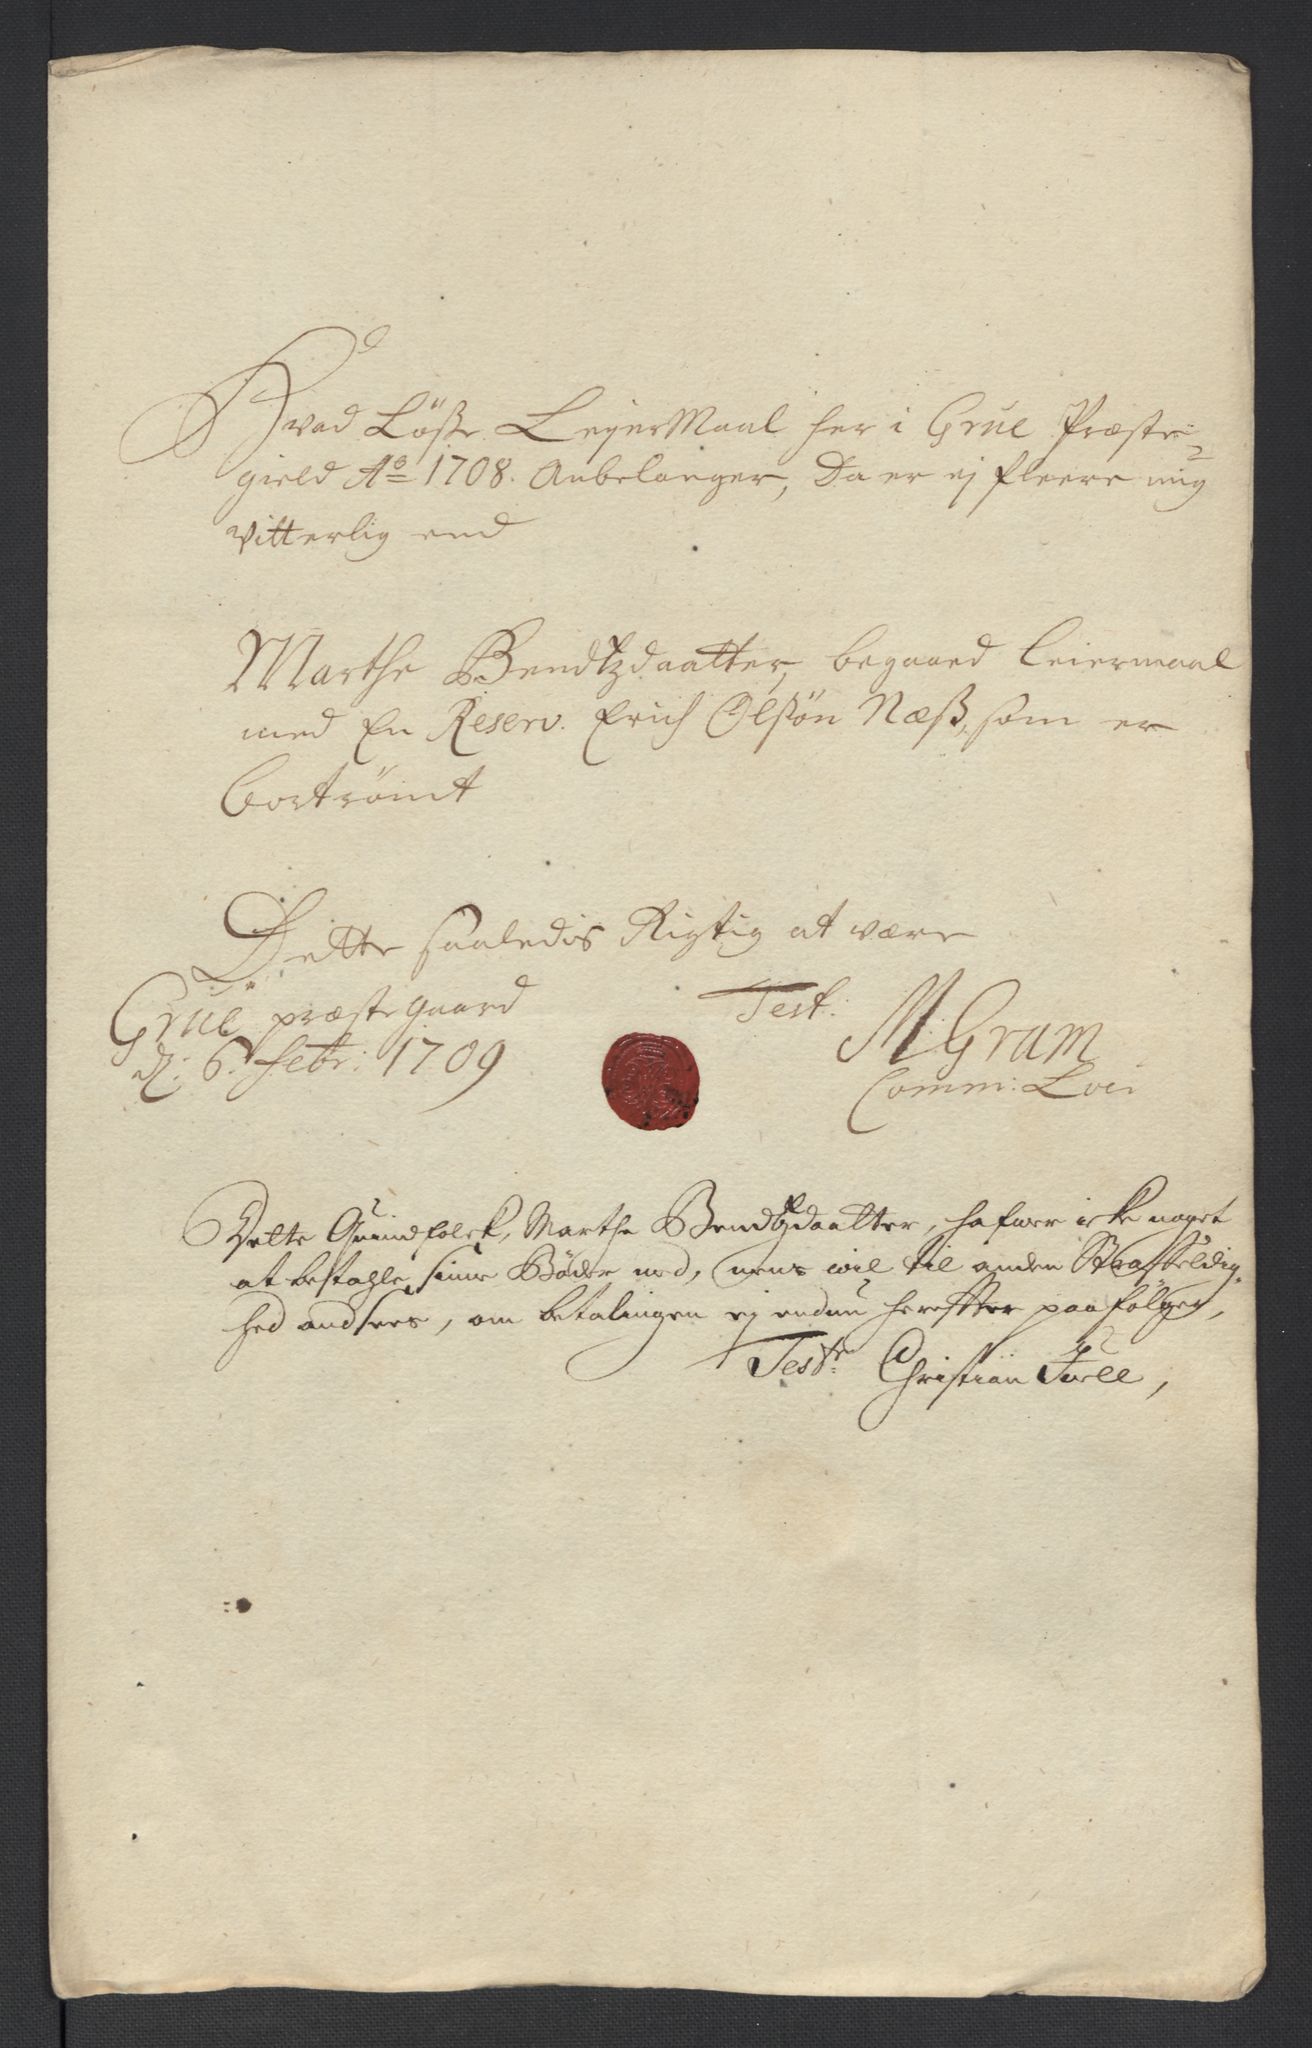 Hvad Løsse LeyerMaal her i Grue Præste-
gield Ao 1708. Anbelanger, Da er ej fleere mig
vitterlig end
Marthe Bendtzdaatter, begaaed leiermaal
med En Reserv. Erich Olssøn Næss, som er
bortrømt
Dette saaledis Rigtig at være
Grue præstegaard
d: 6. Febr: 1709
Test:
M Gram
Comm: Loci
Dette Quindfolck, Marthe Bendtzdaatter, hafuer icke noget
at bestahle sinne Bøder med, mens wil til anden Straffældig-
hed andsees, om betalingen ej endnu herefter paafølger,
Test: Christian Juell,